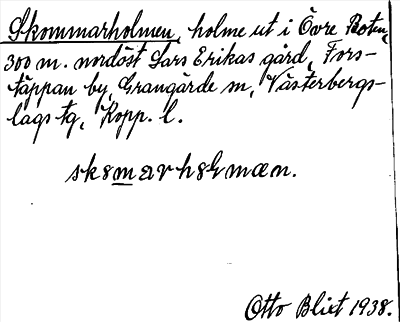 Skommarholmen, holme ut i Övre Roten,
300 m. nordöst Lars Erikas gård, Fors-
täppan by, Grangärde sn, Västerbergs-
lags tg, Kopp. l.
Otto Blixt 1938.